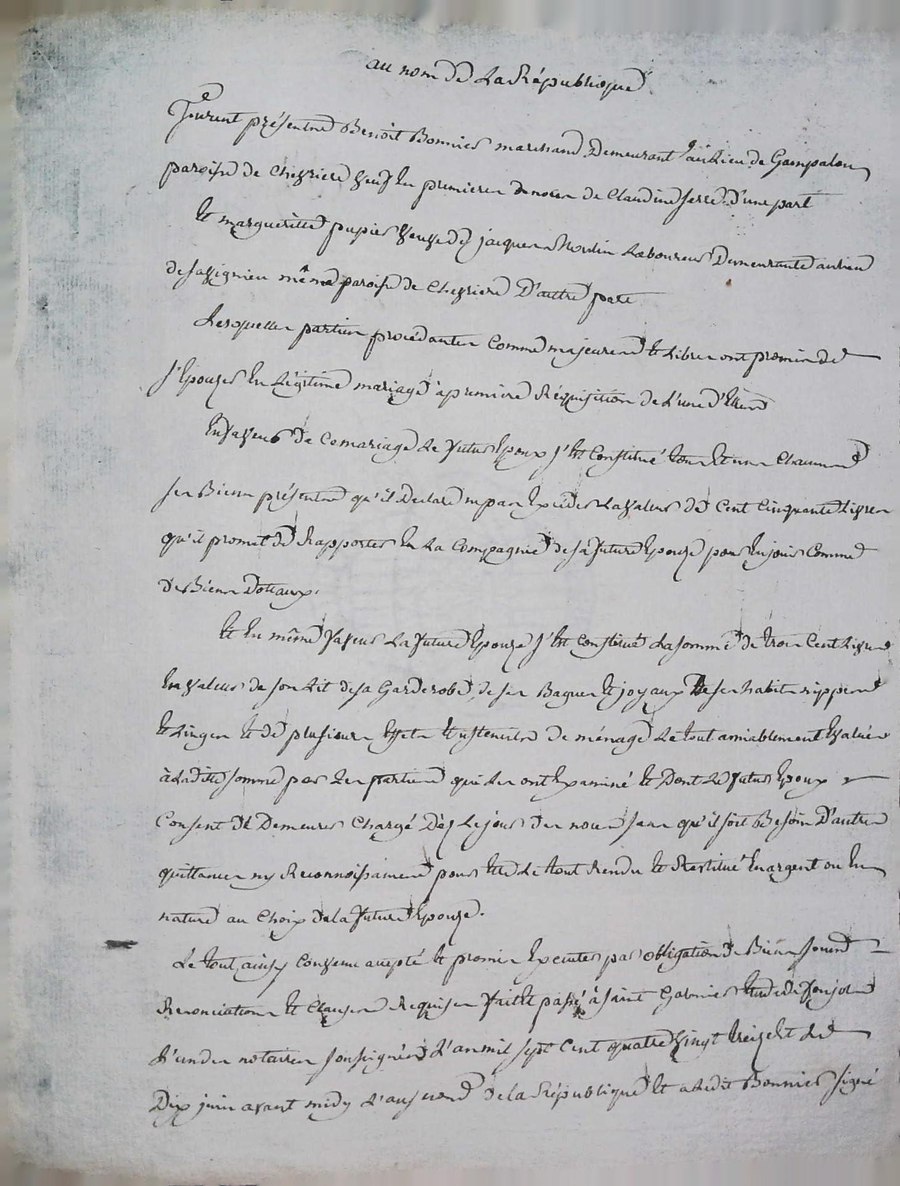 au nom de La République
furent présents Benoit Bonnier marchand Demeurant au Lieu de
paroisse de Chevriere veuf en premieres de noces de Claudine serre D'une part
Et margueritte pupier veuve de jacques Laboureur Demeurante au lieu
de même paroisse de Chevriere D'autre part
Lesquelles parties procédantes Comme majeures Et Libres ont promis de
s'Epouser En Légitime mariage a premiere Réquisition de L'une d'Elles
En faveur de Ce mariage Le futur Epoux s'Est Constitué tous Et uns Chacuns
ses Biens présents qu'il Declare ne pas Excéder La valeur de Cent Cinquante Livres
qu'il promet de Rapporter En La Compagnie de sa future Epouze pour En jouir Comme
de Biens Dottaux.
Et En même faveur La future Epouze s'Est Constitué La somme de trois Cent Livres
En valeur de son Lit de sa Garderobe, de ses Bagues Et joyaux De ses habits nippes
Et Linges Et de plusieurs Effets Et ustencilles de ménage Le tout amiablement Evalué
à Ladite somme par Les parties qui Les ont Examiné Et Dont Le futur Epoux
Consent de Demeurer Chargé Dès Le jour des noces sans qu'il soit Besoin D'autre
quittance ny Reconnoissance pour Etre Le tout Rendu Et Restitué En argent ou En
nature au Choix de la future Epouze.
Le tout ainsy Convenu accepté Et promis Executer par obligation de Biens
Renonciations Et Clauses Requises fait Et passé à saint Galmier Etude de
L'un des notaires soussignés L'an mil sept Cent quatre vingt treize Et Le
Dix juin avant midy L'an second de la République Et a Ledit Bonnier signé